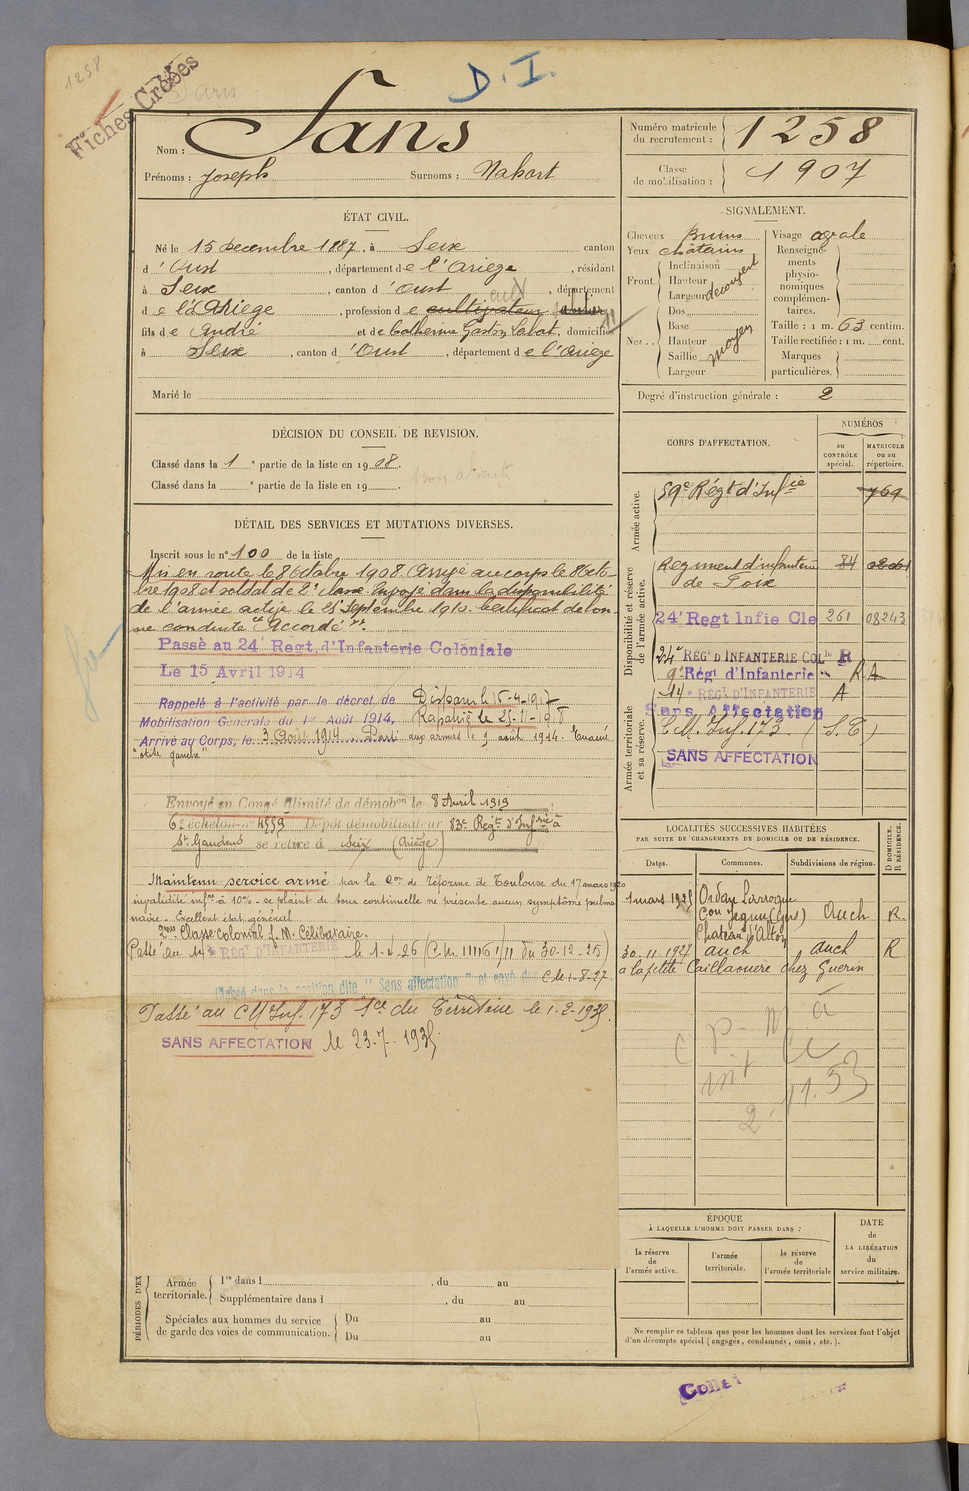 1258
Fiches Créées
D. I.
Nom : Sans
Prénoms : Joseph Surnoms : Nahort
Numéro matricule du recrutement : 1258
Classe de mobilisation : 1907
ÉTAT CIVIL.
Né le 15 Decembre 1887, à Seix canton
d'Oust, département de l'Ariege, résidant
à Seix, canton d'Oust, département
de l'Ariege, profession de cultivateur
fils de André et de Catherine Gaston Labat, domiciliés
à Seix, canton d'Oust, département de l'Ariege
Marié le
SIGNALEMENT.
Cheveux Bruns
Yeux chatains
Front. Inclinaison
Hauteur
Largeur
decouvert
Nez . . Dos
Base
Hauteur
Saillie
Largeur
moyen
Visage ovale
Renseignements physionomiques complémentaires.
Taille : 1 m. 63 centim.
Taille rectifiée : 1 m. cent.
Marques particulières.
Degré d'instruction générale : 2
DÉCISION DU CONSEIL DE REVISION.
Classé dans la 1e partie de la liste en 1908.
Classé dans la e partie de la liste en 19
DÉTAIL DES SERVICES ET MUTATIONS DIVERSES.
Inscrit sous le n° 100 de la liste
Mis en route le 8 Octobre 1908. Arrivé au corps le 8 Octo-
bre 1908 et soldat de 2e classe. Envoyé dans la disponibilité
de l'armée active le 25 Septembre 1910. Certificat de bon-
ne conduite "Accordé".
Passé au 24e Regt. d'Infanterie Coloniale
Le 15 Avril 1914
Rappelé à l'activité par le décret de
Mobilisation Générale du 1er Août 1914,
Disparu le 15-4-1917
Rapatrié le 25-11-1918
Arrivé au Corps, le 3 Août 1914. Parti aux armées le 7 août 1914. Evacué
"otite gauche"
Envoyé en Congé illimité de démobon le 8 Avril 1919
6e échelon n° 4559 Dépôt démobilisateur 83e Regt d'Infrie à
St Gaudens se retire à Seix (Ariège)
Maintenu service armé par la Con de réforme de Toulouse du 17 mars 1920
invalidité infre à 10% - se plaint de toux continuelle ne présente aucun symptôme pulmo
naire - Excellent état général
2me Classe Colonial S. M. Célibataire.
Passé au 14e RÉGt D'INFANTERIE le 1-4-26 (C.M. 11116 1/11 du 30-12-25)
Placé dans la position dite "Sans affectation" et rayé des C le 1-8-27
Passé au CM Inf. 173 Sce du Territoire le 1-2-1935.
SANS AFFECTATION le 23-7-1935
CORPS D'AFFECTATION.
NUMÉROS
au CONTRÔLE spécial.
MATRICULE ou au répertoire.
Armée active.
59e Régt d'Infie 769
Disponibilité et réserve de l'armée active.
Regiment d'infanterie 84
de Foix
24e Regt Infie Cle 261 08243
24e RÉGt D'INFANTERIE COLle R
9e Régt d'Infanterie R A
14e RÉGt D'INFANTERIE A
Sans Affectation
Armée territoriale et sa réserve.
C.M. Inf. 173. (S.T)
SANS AFFECTATION
LOCALITÉS SUCCESSIVES HABITÉES
PAR SUITE DE CHANGEMENTS DE DOMICILE OU DE RÉSIDENCE.
Dates. Communes. Subdivisions de région. D DOMICILE. R RÉSIDENCE.
1 mars 1925 Ordan Larroque
Con Jegun (Gers) Auch R.
Chateau d'Alton
30.11.1927 auch auch R
a la petite Caillaouere chez Guerin
ÉPOQUE
À LAQUELLE L'HOMME DOIT PASSER DANS :
la réserve de l'armée active.
l'armée territoriale.
la réserve de l'armée territoriale
DATE de LA LIBÉRATION du service militaire.
PÉRIODES D'EX
Armée territoriale. 1re dans l , du au
Supplémentaire dans l , du au
Spéciales aux hommes du service de garde des voies de communication. Du au
Du au
Ne remplir ce tableau que pour les hommes dont les services font l'objet
d'un décompte spécial (engagés, condamnés, omis, etc.).